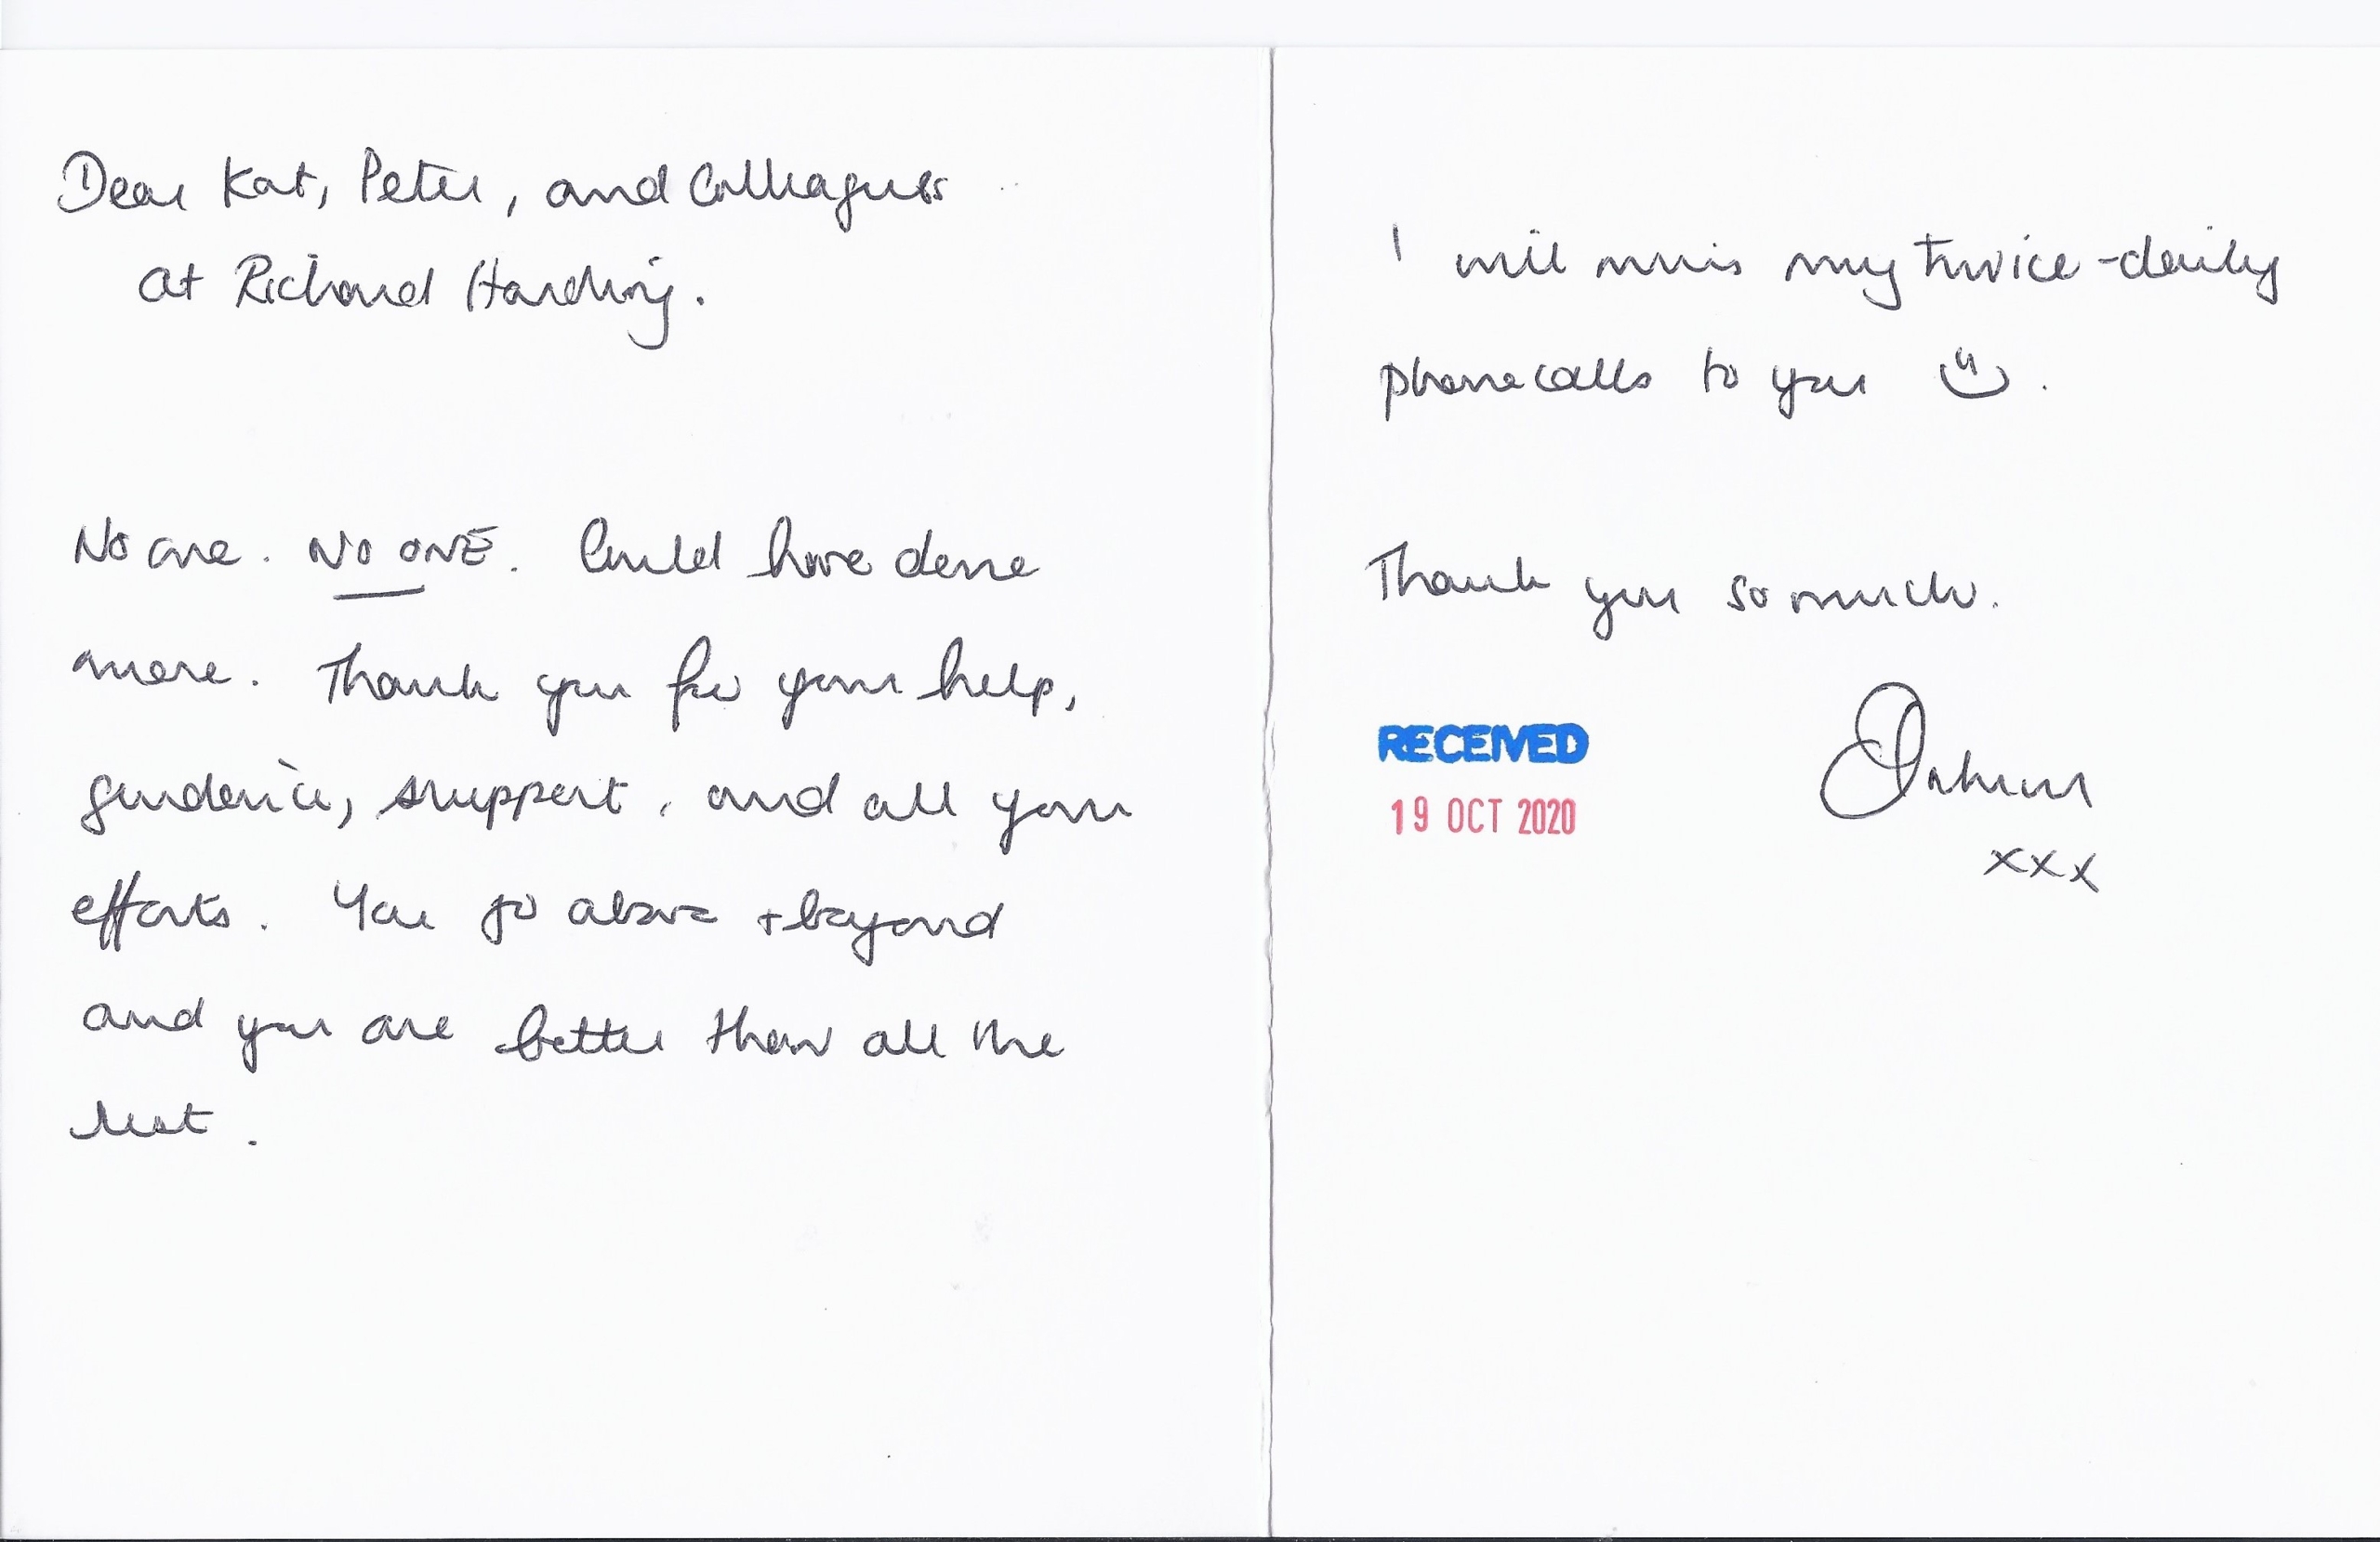 Dear Kat, Peter, and Colleagues
at Richard Harding.
No one. NO ONE. Could have done
more. Thank you for your help,
guidance, support, and all your
efforts. You go above + beyond
and you are better than all the
rest.
I will miss my twice-daily
phonecalls to you
Thank you so much.
RECEIVED
19 OCT 2020
xxx